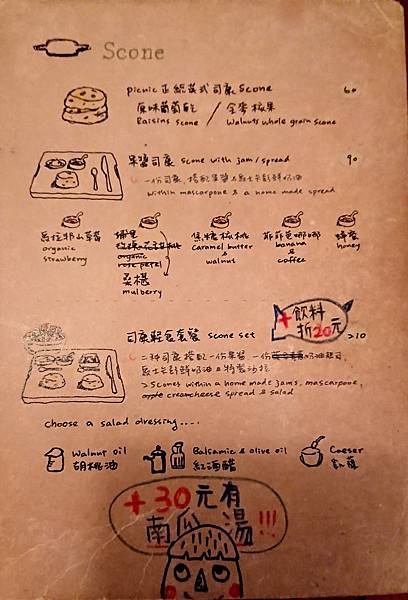 Scone
picnic 正統英式司康 Scone 60
原味葡萄乾 / 全麥核果
Raisins scone / Walnuts whole grain scone
果醬司康 scone with jam/spread 90
一份司康,搭配果醬&馬士卡彭鮮奶油
within mascarpone & a home made spread
馬拉邦山草莓
organic strawberry
organic rose petal
桑椹
mulberry
焦糖核桃
caramel butter & walnut
菲菲芭娜娜
banana & coffee
蜂蜜
honey
司康輕食套餐 scone set 210
+飲料折20元
二種司康搭配一份果醬 一份奶油起司,
馬士卡彭鮮奶油&特製沙拉
2 scones within a home made jams, mascarpone,
creamcheese spread & salad
choose a salad dressing....
Walnut oil
胡桃油
Balsamic & olive oil
紅酒醋
Caeser
凱薩
+30元有
南瓜湯!!!